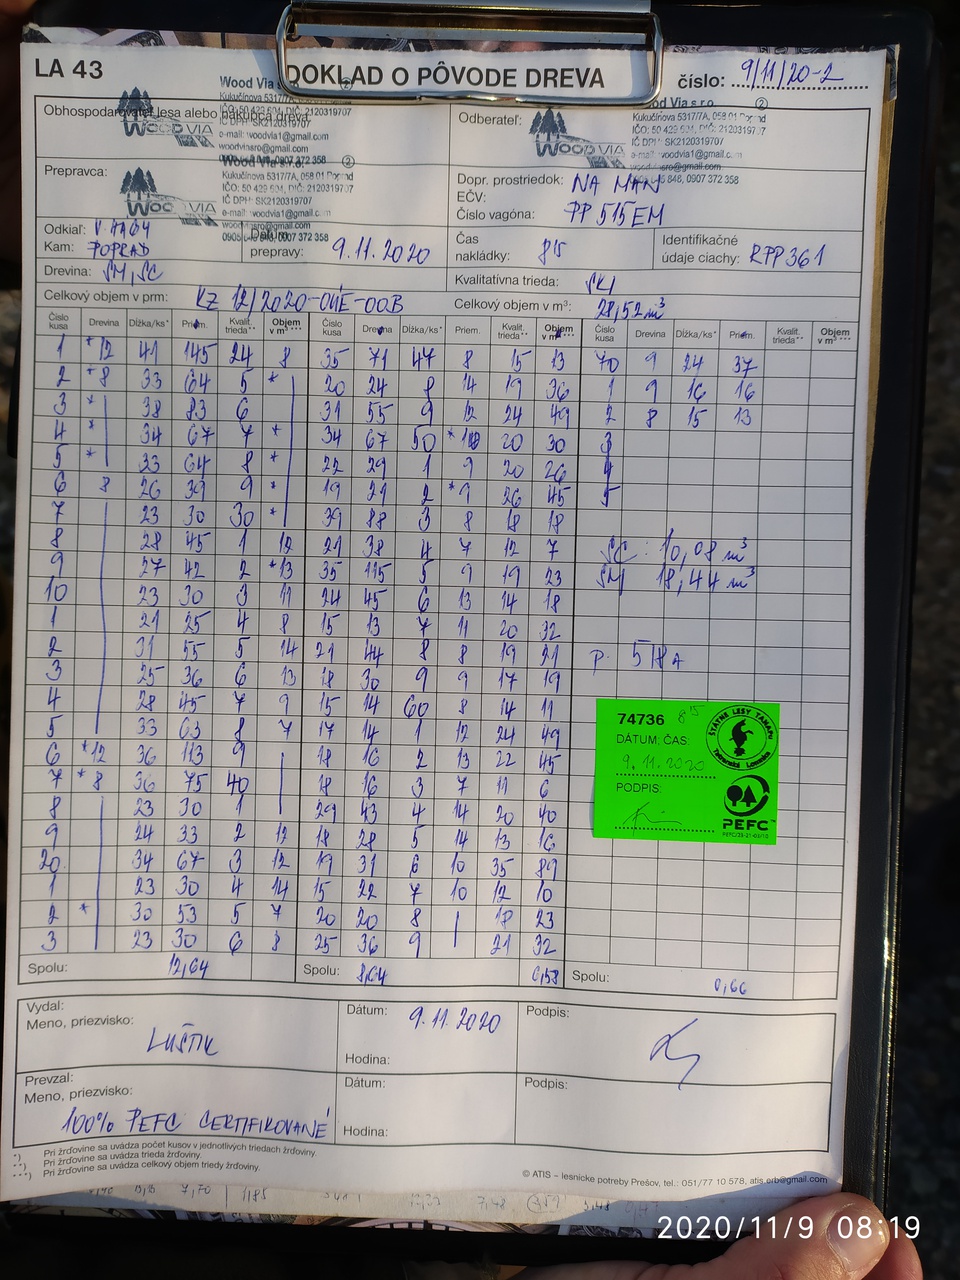 LA 43
DOKLAD O PÔVODE DREVA
číslo: 9/11/20-2
Obhospodarovateľ lesa alebo nákupca dreva:
Wood Via s.r.o. ②
Kukučínova 5317/7A, 058 01 Poprad
IČO: 50 429 604, DIČ: 2120319707
IČ DPH: SK2120319707
e-mail: woodvia1@gmail.com
WOOD VIA
Odberateľ:
Wood Via s.r.o. ②
Kukučínova 5317/7A, 058 01 Poprad
IČO: 50 429 604, DIČ: 2120319707
IČ DPH: SK2120319707
e-mail: woodvia1@gmail.com
WOOD VIA
Prepravca:
Wood Via s.r.o. ②
Kukučínova 5317/7A, 058 01 Poprad
IČO: 50 429 604, DIČ: 2120319707
IČ DPH: SK2120319707
e-mail: woodvia1@gmail.com
WOOD VIA
Dopr. prostriedok: NA MAN
EČV:
Číslo vagóna: PP 515EM
Odkiaľ:
Kam: POPRAD
Dátum
prepravy: 9.11.2020
Čas
nakládky: 8 15
Identifikačné
údaje ciachy: RPP361
Drevina: SM, SC
Kvalitatívna trieda:
Celkový objem v prm: KZ 12/2020-04E-00B
Celkový objem v m³: 28,52 m³
Číslo kusa Drevina Dĺžka/ks* Priem. Kvalit. trieda** Objem v m³*** Číslo kusa Drevina Dĺžka/ks* Priem. Kvalit. trieda** Objem v m³*** Číslo kusa Drevina Dĺžka/ks* Priem. Kvalit. trieda** Objem v m³***
1 *12 41 145 24 8 35 71 47 8 15 13 70 9 24 37
2 *8 33 64 5 * 20 24 8 14 19 36 1 9 16 16
3 * 38 83 6 31 55 9 12 24 49 2 8 15 13
4 * 34 67 7 * 34 67 50 * 20 30 3
5 * 33 64 8 * 22 29 1 9 20 26 4
6 8 26 39 9 * 19 21 2 *9 26 45 5
7 23 30 30 * 39 88 3 8 18 18
8 28 45 1 12 21 38 4 7 12 7
SC: 10,08 m³
9 27 42 2 *13 35 115 5 9 19 23
SM 18,44 m³
10 23 30 3 11 24 45 6 13 14 18
1 21 25 4 8 15 13 7 11 20 32
2 31 55 5 14 21 44 8 8 19 21
P. 518A
3 25 36 6 13 18 30 9 9 17 19
4 28 45 7 9 15 14 60 8 14 11
5 33 63 8 7 17 14 1 12 24 49
6 *12 36 113 9 18 16 2 13 22 45
7 *8 36 75 40 18 16 3 7 11 6
8 23 30 1 29 43 4 14 20 40
9 24 33 2 12 18 28 5 14 13 16
20 34 67 3 12 19 31 6 10 35 89
1 23 30 4 14 15 22 7 10 12 10
2 * 30 53 5 7 20 20 8 18 23
3 23 30 6 8 25 36 9 21 32
74736 8 15
DÁTUM, ČAS:
9.11.2020
PODPIS:
ŠTÁTNE LESY TANAPu
Tatranská Lomnica
PEFC
Spolu: 12,64
Spolu: 8,64 6,58
Spolu: 0,66
Vydal:
Meno, priezvisko:
LUŠTIK
Dátum: 9.11.2020
Hodina:
Podpis:
Prevzal:
Meno, priezvisko:
100% PEFC CERTIFIKOVANÉ
Dátum:
Hodina:
Podpis:
*) Pri žrďovine sa uvádza počet kusov v jednotlivých triedach žrďoviny.
**) Pri žrďovine sa uvádza trieda žrďoviny.
***) Pri žrďovine sa uvádza celkový objem triedy žrďoviny.
© ATIS – lesnícke potreby Prešov, tel.: 051/77 10 578, atis.erb@gmail.com
2020/11/9 08:19